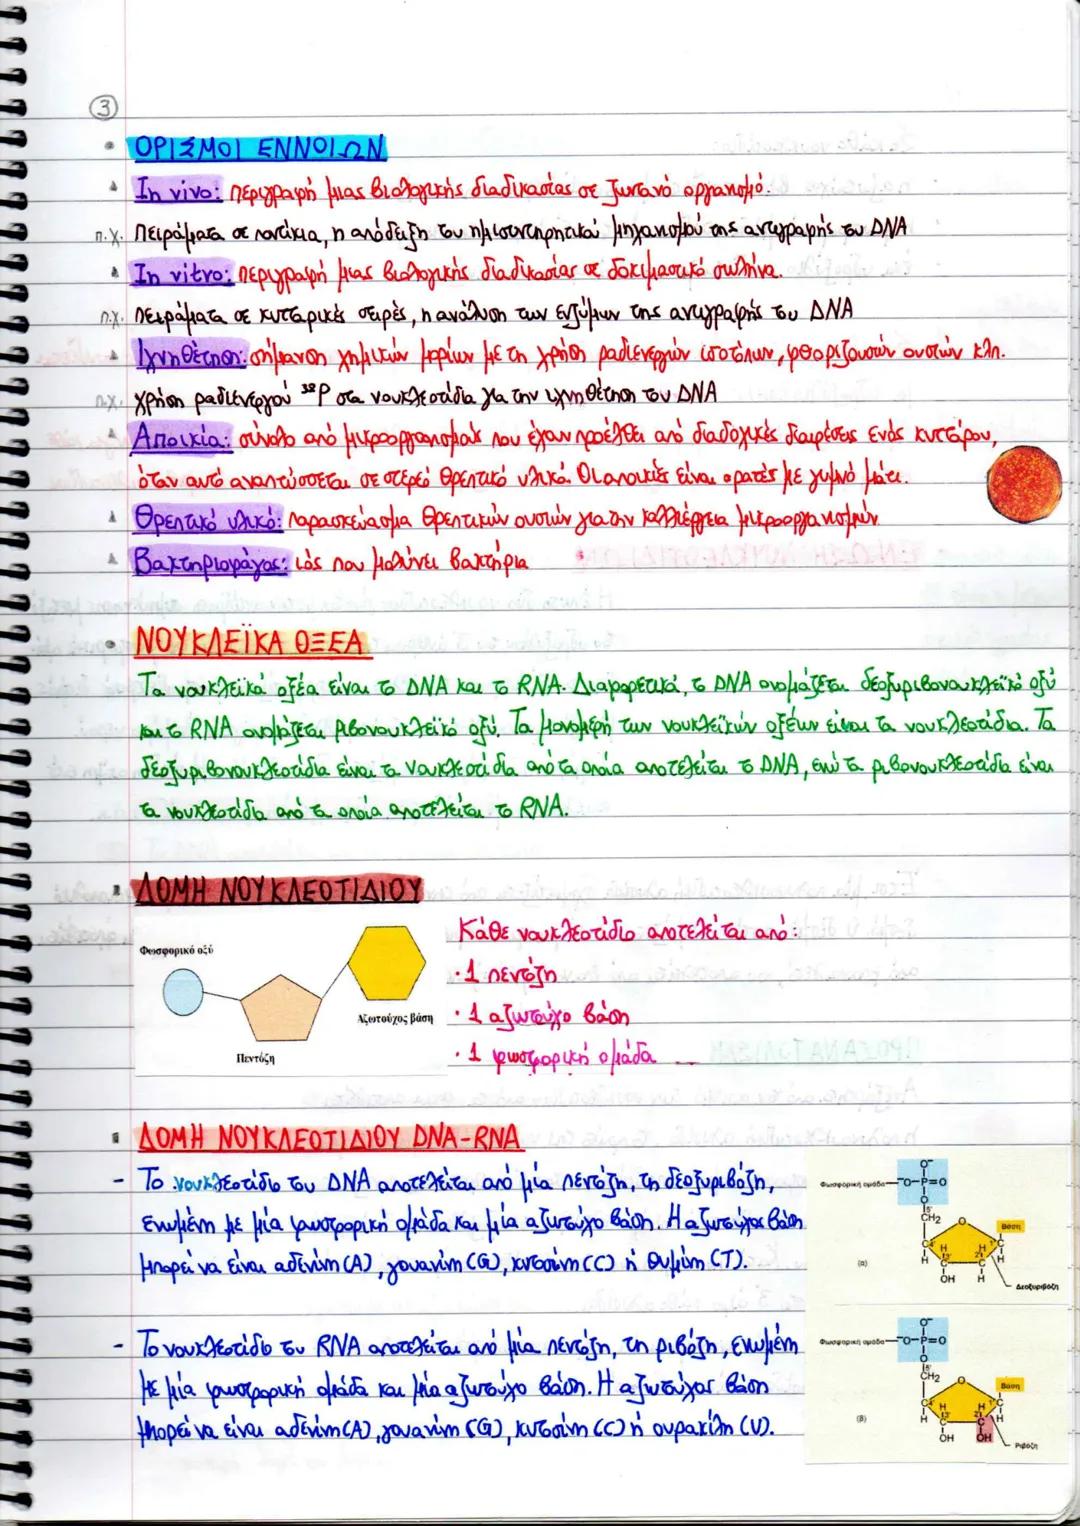 3
ΟΡΙΣΜΟΙ ΕΝΝΟΙΩΝ
In vivo: περιγραφή μιας βιολογικής διαδικασίας σε ζωντανό οργανισμό.
π.χ. Πειράματα σε ποντίκια, η απόδειξη του ημισυντηρητικού μηχανισμού της αντιγραφής του DNA
In vitro: περιγραφή μιας βιολογικής διαδικασίας σε δοκιμαστικό σωλήνα.
π.χ. Πειράματα σε κυτταρικές σειρές, η ανάλυση των ενζύμων της αντιγραφής του DNA
Ιχνηθέτηση: σήμανση χημικών μορίων με τη χρήση ραδιενεργών ισοτόπων, φθοριζουσών ουσιών κλπ.
π.χ. Χρήση ραδιενεργού ³²P στα νουκλεοτίδια για την ιχνηθέτηση του DNA
Αποικία: σύνολο από μικροοργανισμούς που έχουν προέλθει από διαδοχικές διαιρέσεις ενός κυττάρου,
όταν αυτό αναπτύσσεται σε στερεό θρεπτικό υλικό. Οι αποικίες είναι ορατές με γυμνό μάτι.
Θρεπτικό υλικό: παρασκεύασμα θρεπτικών ουσιών για την καλλιέργεια μικροοργανισμών
Βακτηριοφάγος: ιός που μολύνει βακτήρια
ΝΟΥΚΛΕΪΚΑ ΟΞΕΑ
Τα νουκλεϊκά οξέα είναι το DNA και το RNA. Διαφορετικά, το DNA ονομάζεται δεοξυριβονουκλεϊκό οξύ
και το RNA ονομάζεται ριβονουκλεϊκό οξύ. Τα μονομερή των νουκλεϊκών οξέων είναι τα νουκλεοτίδια. Τα
δεοξυριβονουκλεοτίδια είναι τα νουκλεοτίδια από τα οποία αποτελείται το DNA, ενώ τα ριβονουκλεοτίδια είναι
τα νουκλεοτίδια από τα οποία αποτελείται το RNA.
ΔΟΜΗ ΝΟΥΚΛΕΟΤΙΔΙΟΥ
Φωσφορικό οξύ
Πεντόζη
Αζωτούχος βάση
Κάθε νουκλεοτίδιο αποτελείται από:
· 1 πεντόζη
· 1 αζωτούχο βάση
· 1 φωσφορική ομάδα
ΔΟΜΗ ΝΟΥΚΛΕΟΤΙΔΙΟΥ DNA-RNA
- Το νουκλεοτίδιο του DNA αποτελείται από μία πεντόζη, τη δεοξυριβόζη,
ενωμένη με μία φωσφορική ομάδα και μία αζωτούχο βάση. Η αζωτούχος βάση
μπορεί να είναι αδενίνη (A), γουανίνη (G), κυτοσίνη (C) ή θυμίνη (T).
Φωσφορική ομάδα
⁻O-P=O
O⁻
O
5'
CH₂
O
Βάση
4'
C
H
H
3'
2'
1'
OH
H
(α)
Δεοξυριβόζη
- Το νουκλεοτίδιο του RNA αποτελείται από μία πεντόζη, τη ριβόζη, ενωμένη
με μία φωσφορική ομάδα και μία αζωτούχο βάση. Η αζωτούχος βάση
μπορεί να είναι αδενίνη (A), γουανίνη (G), κυτοσίνη (C) ή ουρακίλη (U).
Φωσφορική ομάδα
⁻O-P=O
O⁻
O
5'
CH₂
O
Βάση
4'
C
H
H
3'
2'
1'
OH
OH
(β)
Ριβόζη